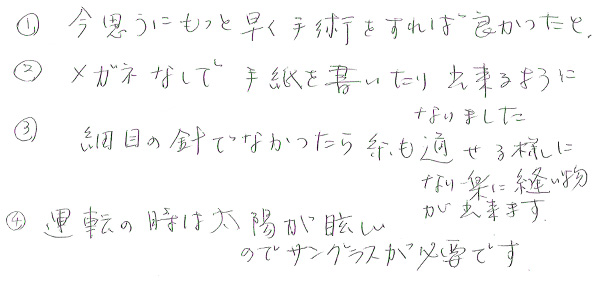 ① 今思うにもっと早く手術をすれば良かったと、
② メガネなしで手紙を書いたり出来るように
なりました
③ 細目の針でなかったら糸も通せる様に
なり楽に縫い物
が出来ます
④ 運転の時は太陽が眩しい
のでサングラスが必要です